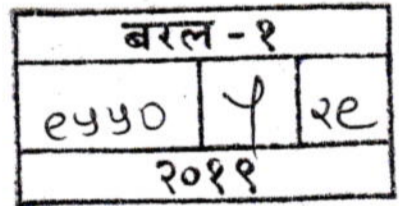 बरल - १
९५५० ५ २९
२०१९